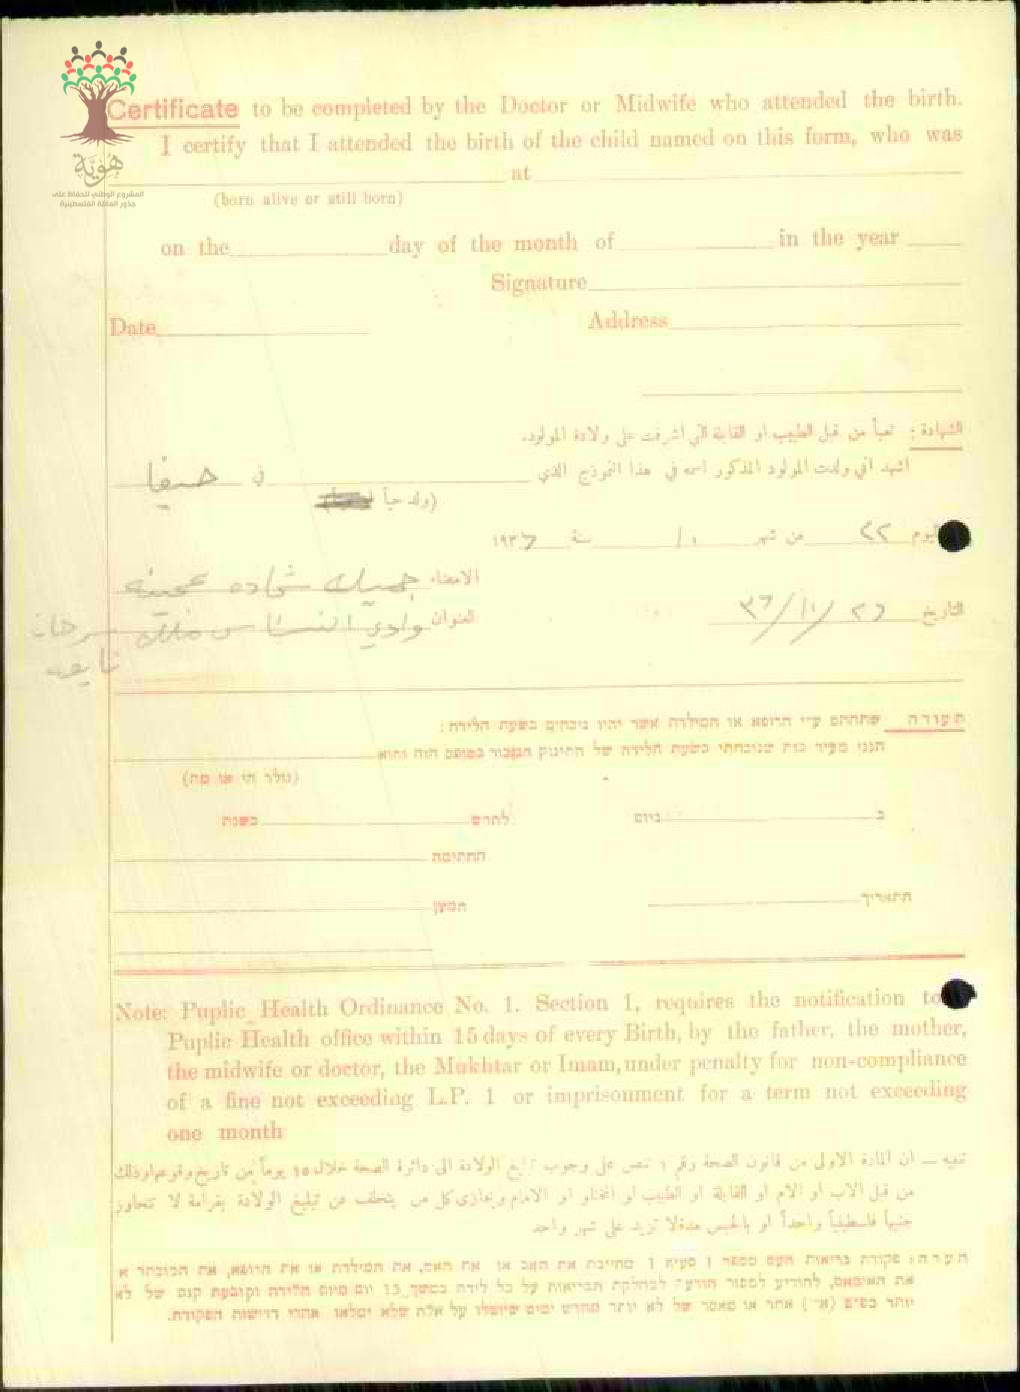 هُوِيَّة
المشروع الوطني للحفاظ على
جذور العائلة الفلسطينية
Certificate to be completed by the Doctor or Midwife who attended the birth.
I certify that I attended the birth of the child named on this form, who was
at
(born alive or still born)
on the day of the month of in the year
Signature
Date Address
الشهادة : تعبأ من قبل الطبيب او القابلة التي اشرفت على ولادة المولود.
اشهد اني ولدت المولود المذكور اسمه في هذا النموذج الذي في حيفا
(ولد حياً
اليوم ٢٢ من شهر ١٠ سنة ١٩٣٦
الامضاء جميله شحاده
التاريخ ٢٦/١٠/٣٦ العنوان وادي النسناس
תעודה שתחתם ע״י הרופא או המילדת אשר יהיו נוכחים בשעת הלידה :
הנני מעיד בזה שנוכחתי בשעת הלידה של התינוק הנזכר בטופס הזה והוא
(נולד חי או מת)
ב ביום לחדש בשנת
החתימה
התאריך המען
Note: Puplic Health Ordinance No. 1. Section 1, requires the notification to
Puplic Health office within 15 days of every Birth, by the father, the mother,
the midwife or doctor, the Mukhtar or Imam, under penalty for non-compliance
of a fine not exceeding L.P. 1 or imprisonment for a term not exceeding
one month
تنبيه — ان المادة الاولى من قانون الصحة رقم ١ تنص على وجوب تبليغ الولادة الى دائرة الصحة خلال ١٥ يوماً من تاريخ وقوعها وذلك
من قبل الاب او الام او القابلة او الطبيب او المختار او الامام ويجازى كل من يتخلف عن تبليغ الولادة بغرامة لا تتجاوز
جنيهاً فلسطينياً واحداً او بالحبس مدة لا تزيد على شهر واحد
הערה : פקודת בריאות העם מספר 1 סעיף 1 מחייבת את האב או את האם, את המילדת או את הרופא, את המוכתר או
את האימאם, להודיע למחלקת הבריאות על כל לידה במשך 15 יום מיום הלידה וקובעת קנס של לא
יותר או מאסר של לא יותר מחדש ימים